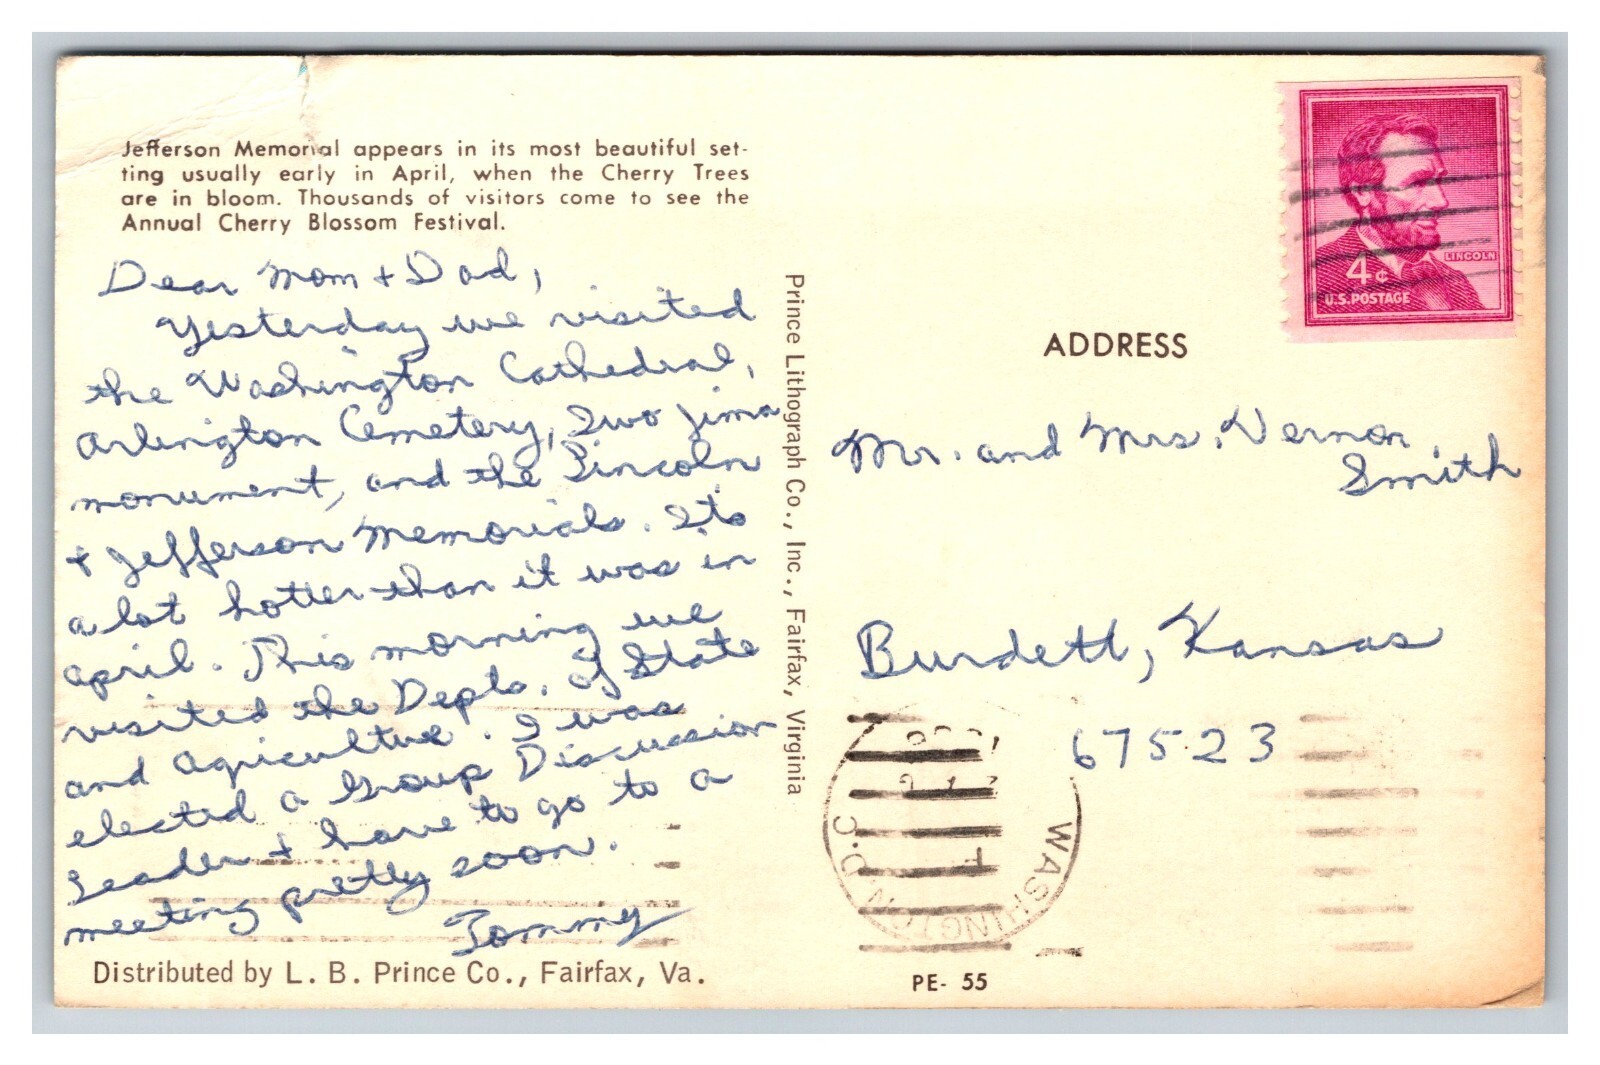 Jefferson Memorial appears in its most beautiful set-
ting usually early in April, when the Cherry Trees
are in bloom. Thousands of visitors come to see the
Annual Cherry Blossom Festival.
Dear Mom + Dad,
Yesterday we visited
the Washington Cathedral,
Arlington Cemetery, Iwo Jima
monument, and the Lincoln
+ Jefferson Memorials. Its
a lot hotter than it was in
april. This morning we
visited the Depts. of State
and Agriculture. I was
elected a Group Discussion
Leader + have to go to a
meeting pretty soon.
Tommy
Distributed by L. B. Prince Co., Fairfax, Va.
Prince Lithograph Co., Inc., Fairfax, Virginia
LINCOLN
4¢
U.S. POSTAGE
ADDRESS
Mr. and Mrs. Vernon
Smith
Burdett, Kansas
67523
WASHINGTON, D.C.
PE- 55